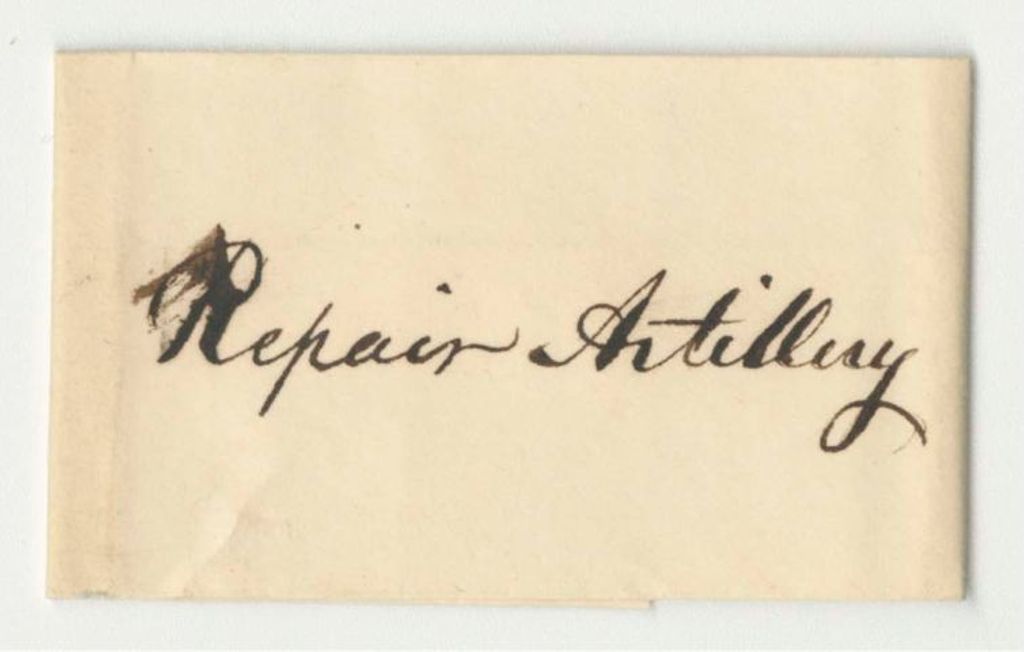 Repair Artillery